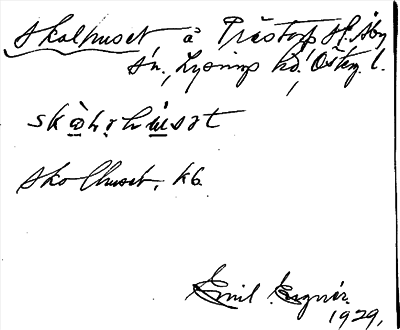 Skolhuset å Prästorp St. Åby
sn., Lysings hd, Österg. l.
skò̤lhu̇̀sət
Skolhuset, kb.
Emil Engnér.
1929.